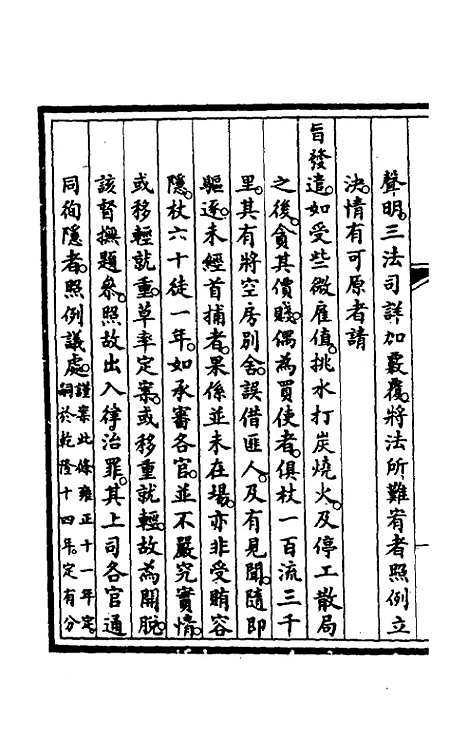 聲明。三法司詳加覈覆。將法所難宥者照例立
決。情有可原者請
旨發遣。如受些微雇值。挑水打炭燒火。及停工散局
之後。貪其價賤。偶為買使者。俱杖一百流三千
里。其有將空房別舍。誤借匪人。及有見聞。隨即
驅逐。未經首捕者。果係並未在場。亦非受賄容
隱。杖六十徒一年。如承審各官。並不嚴究實情。
或移輕就重。草率定案。或移重就輕。故為開脫。
該督撫題參。照故出入律治罪。其上司各官通
同徇隱者。照例議處。謹案此條雍正十一年定。
嗣於乾隆十四年。定有分